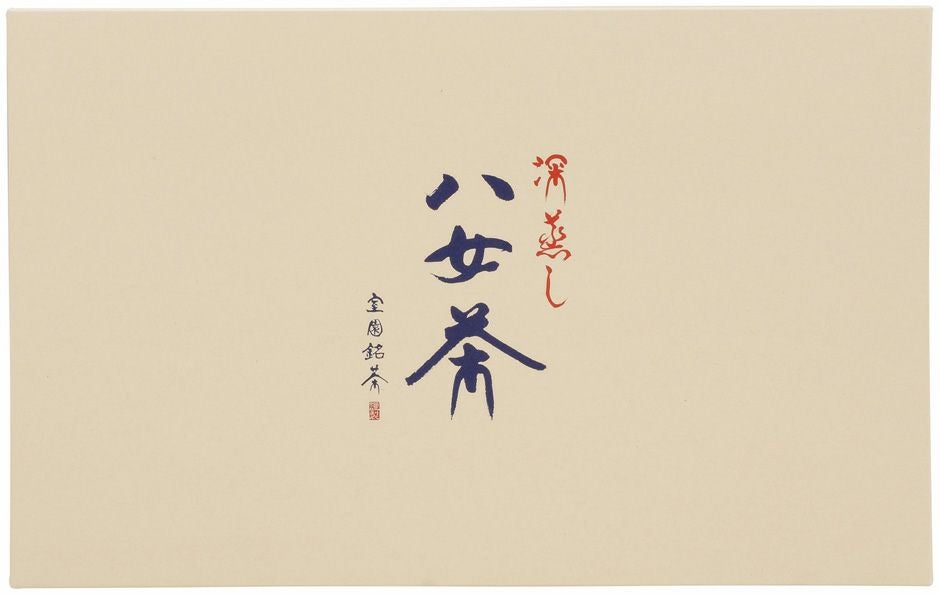 深蒸し
八女茶
室園銘茶